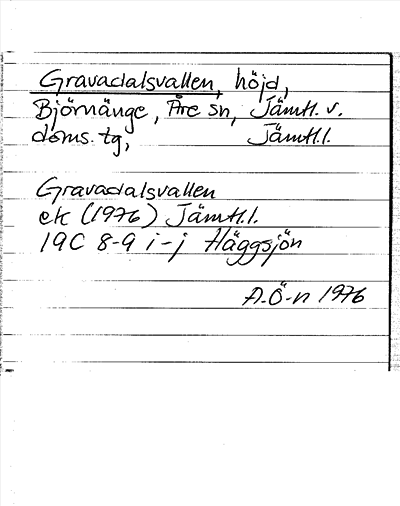 Gravadalsvallen, höjd,
Björnänge, Åre sn, Jämtl. v.
doms. tg, Jämtl.l.
Gravadalsvallen
ek (1976) Jämtl.l.
19C 8-9 i-j Häggsjön
A-Ö-n 1976